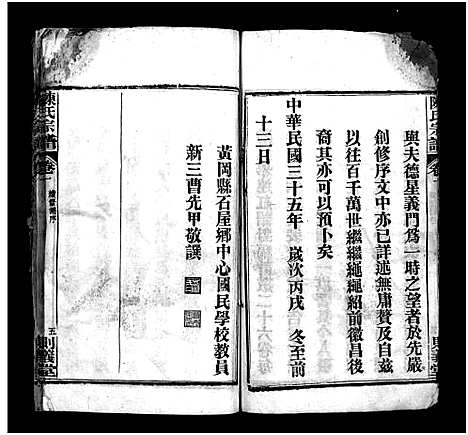 陳氏宗譜
卷一
與夫德星義門為一時之望者於先嚴
創修序文中亦已詳述無庸贅及自茲
以往百千萬世繼繼繩繩紹前徽昌後
裔其亦可以預卜矣
中華民國三十五年 歲次丙戌 冬至前
十三日
黃岡縣石屋鄉中心國民學校教員
新三曹先甲敬譔
陳氏宗譜
卷一
五
則義堂